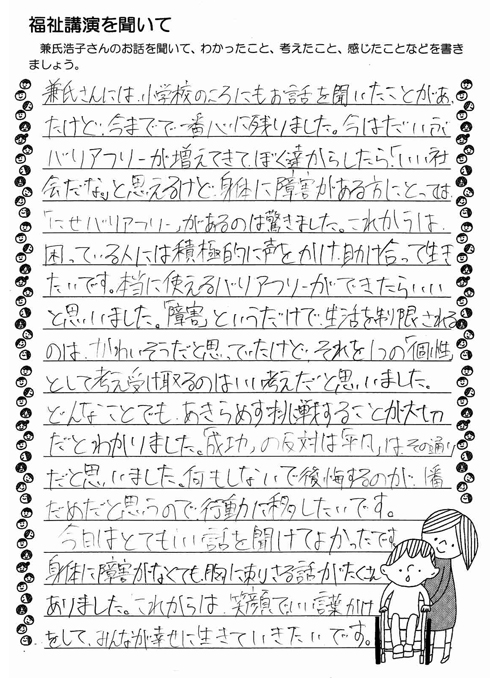 福祉講演を聞いて
兼氏浩子さんのお話を聞いて、わかったこと、考えたこと、感じたことなどを書き
ましょう。
兼氏さんには、小学校のころにもお話を聞いたことがあっ
たけど、今までで一番心に残りました。今はだいぶ
バリアフリーが増えてきて、ぼく達からしたら「いい社
会だな。」と思えるけど、身体に障害がある方にとっては、
「にせバリアフリー」があるのは驚きました。これからは、
困っている人には積極的に声をかけ、助け合って生き
たいです。本当に使えるバリアフリーができたらいい
と思いました。「障害」というだけで、生活を制限される
のは、かわいそうだと思っていたけど、それを1つの「個性」
として考え受け取るのはいい考えだと思いました。
どんなことでも、あきらめず挑戦することが大切
だとわかりました。「成功」の反対は「平凡」は、その通り
だと思いました。何もしないで後悔するのが、一番
だめだと思うので、行動に移したいです。
今日はとてもいい話を聞けてよかったです。
身体に障害がなくても、胸に刺さる話がたくさん
ありました。これからは、笑顔でいい言葉かけ
をして、みんなが幸せに生きていきたいです。